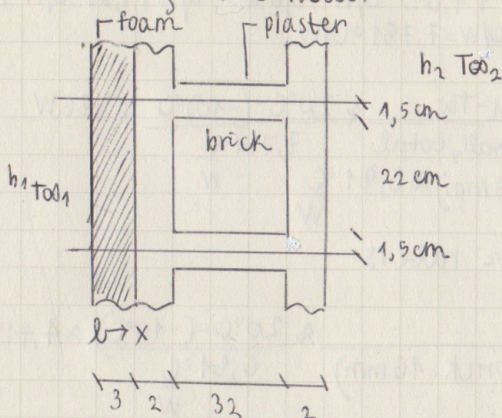 foam
plaster
h₂ T∞₂
1,5 cm
brick
22 cm
h₁ T∞₁
1,5 cm
b→x
3 2 32 2